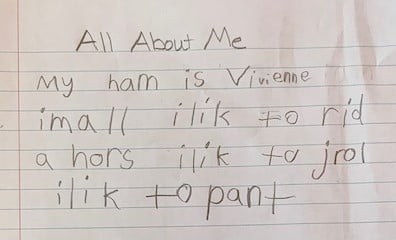 All About Me
My ham is Vivienne
imall ilik to rid
a hors ilik to jrol
ilik to pant